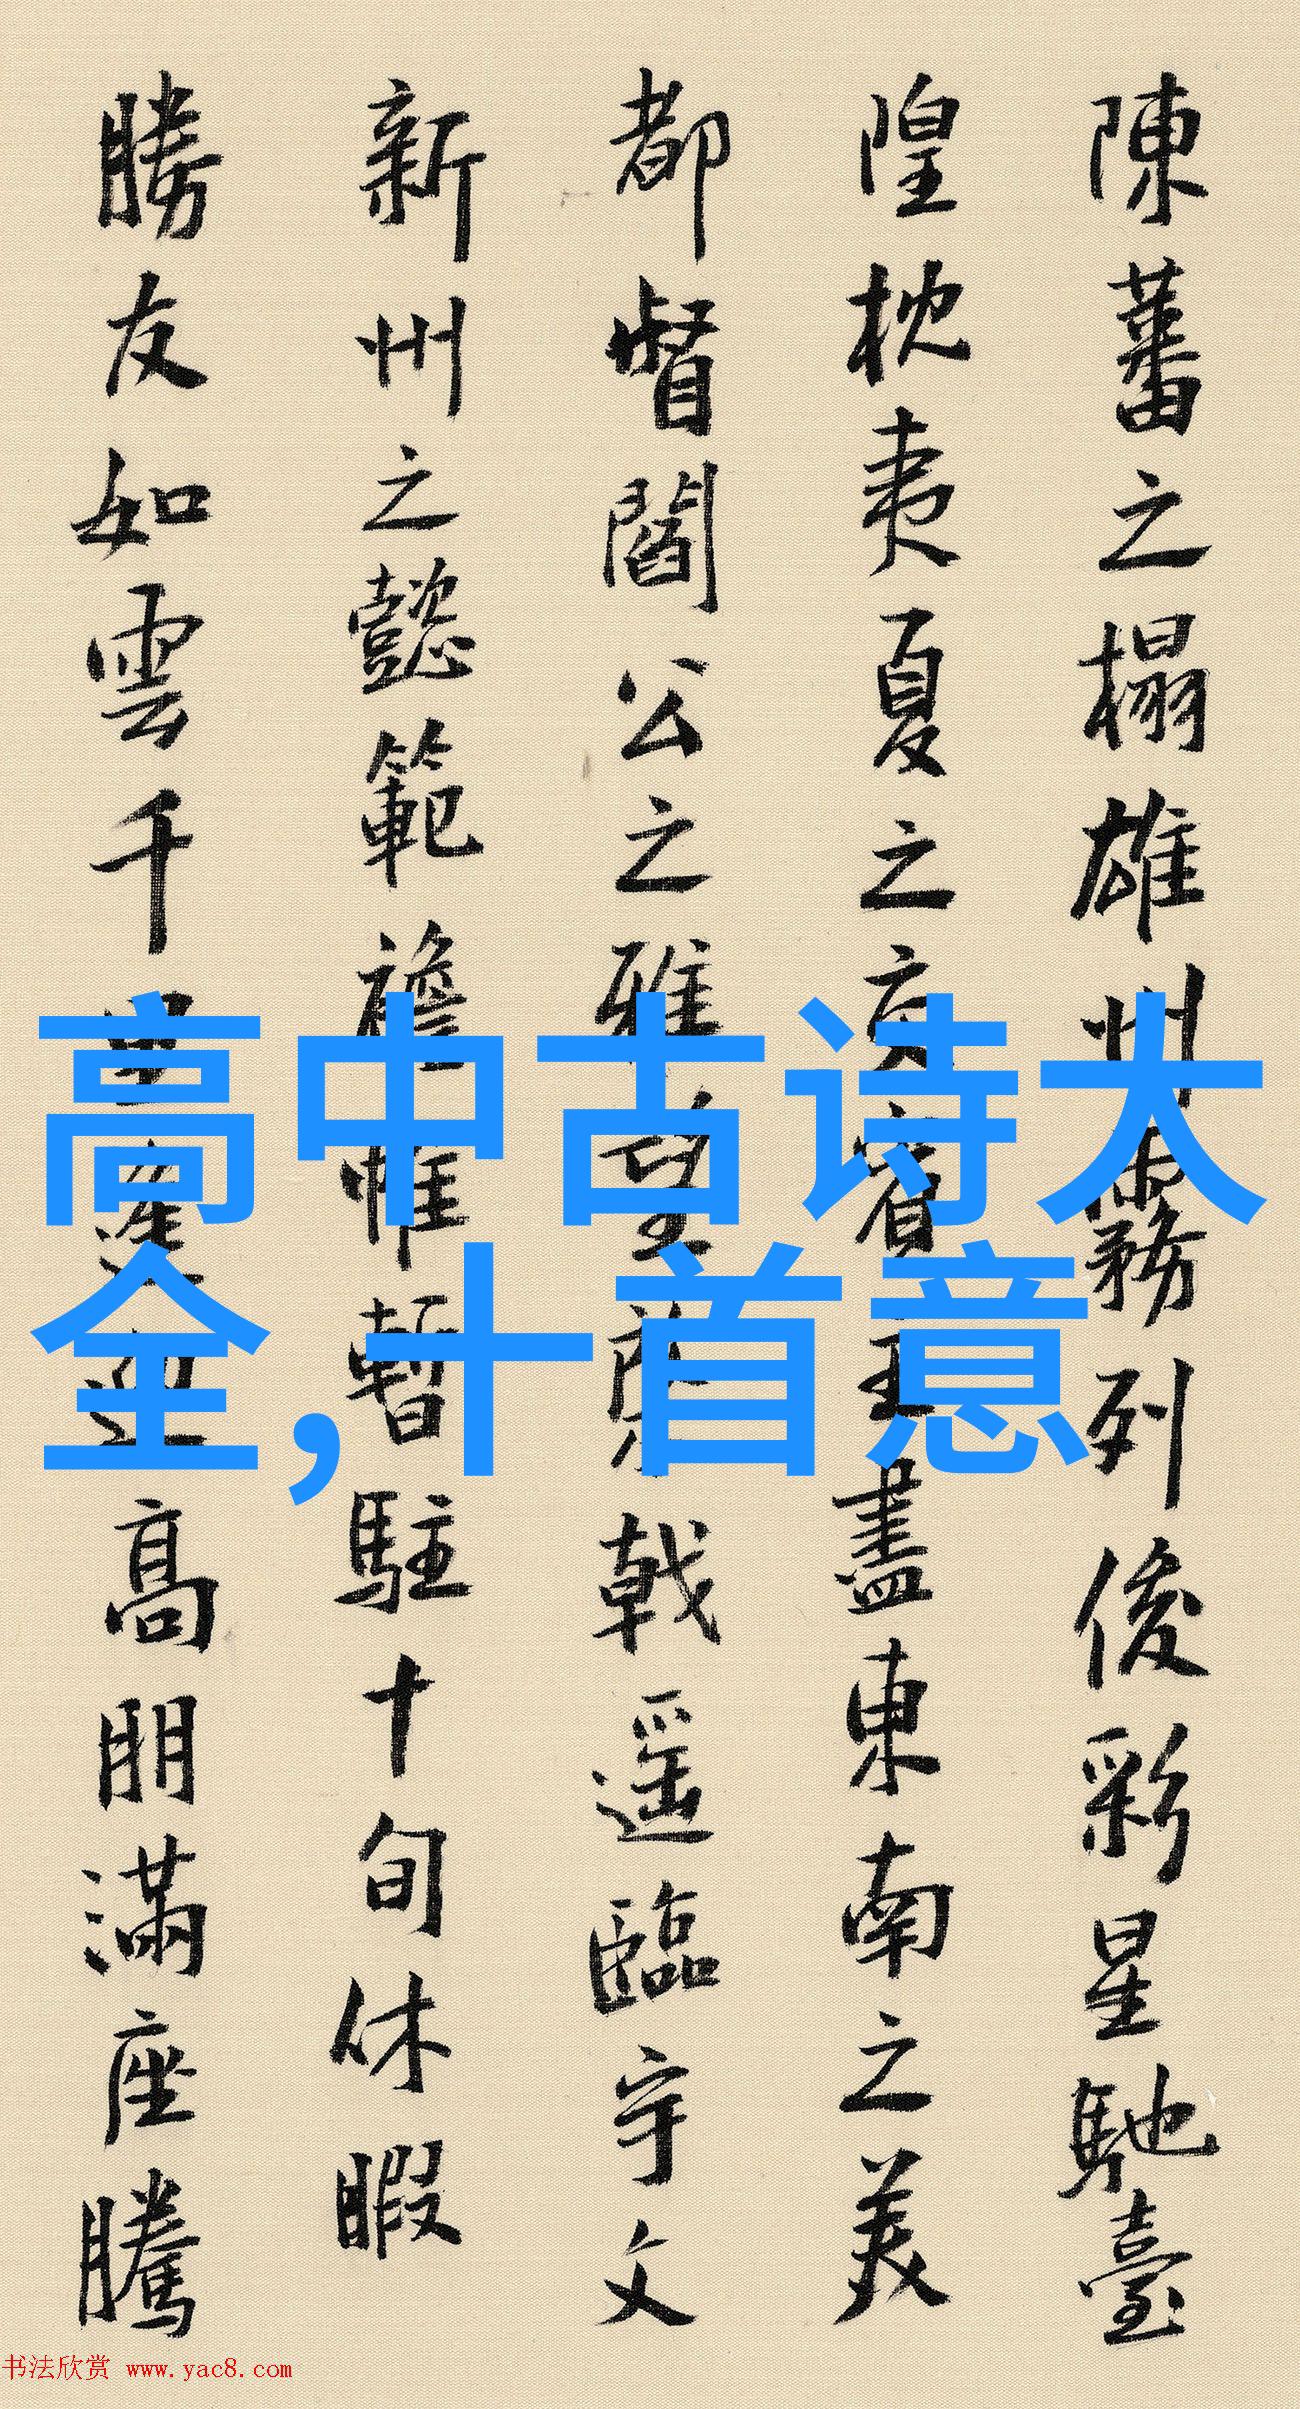 陳蕃之榻雄州霧列俊彩星馳臺
隍枕夷夏之交賓主盡東南之美
都督閻公之雅望棨戟遥臨宇文
新州之懿範襜帷暫駐十旬休暇
勝友如雲千里逢迎高朋滿座騰
高中古诗大
全,十首意
书法欣赏 www.yac8.com